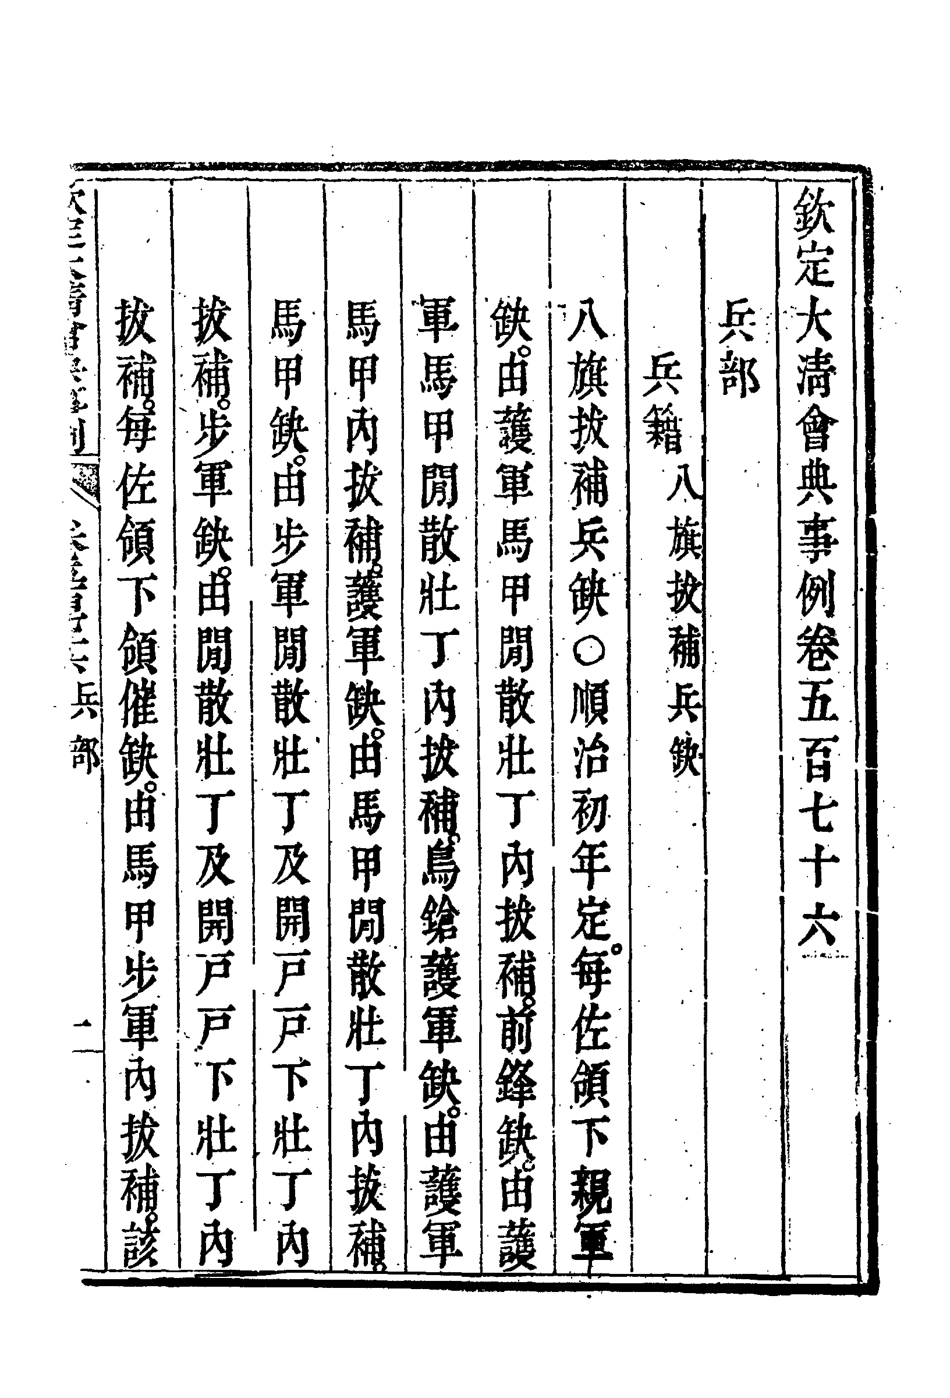 欽定大清會典事例卷五百七十六
兵部
兵籍 八旗拔補兵缺
八旗拔補兵缺〇順治初年定。每佐領下親軍
缺。由護軍馬甲閒散壯丁內拔補。前鋒缺。由護
軍馬甲閒散壯丁內拔補。鳥鎗護軍缺。由護軍
馬甲內拔補。護軍缺。由馬甲閒散壯丁內拔補。
馬甲缺。由步軍閒散壯丁及開戶戶下壯丁內
拔補。步軍缺。由閒散壯丁及開戶戶下壯丁內
拔補。每佐領下領催缺。由馬甲步軍內拔補。該
兵部